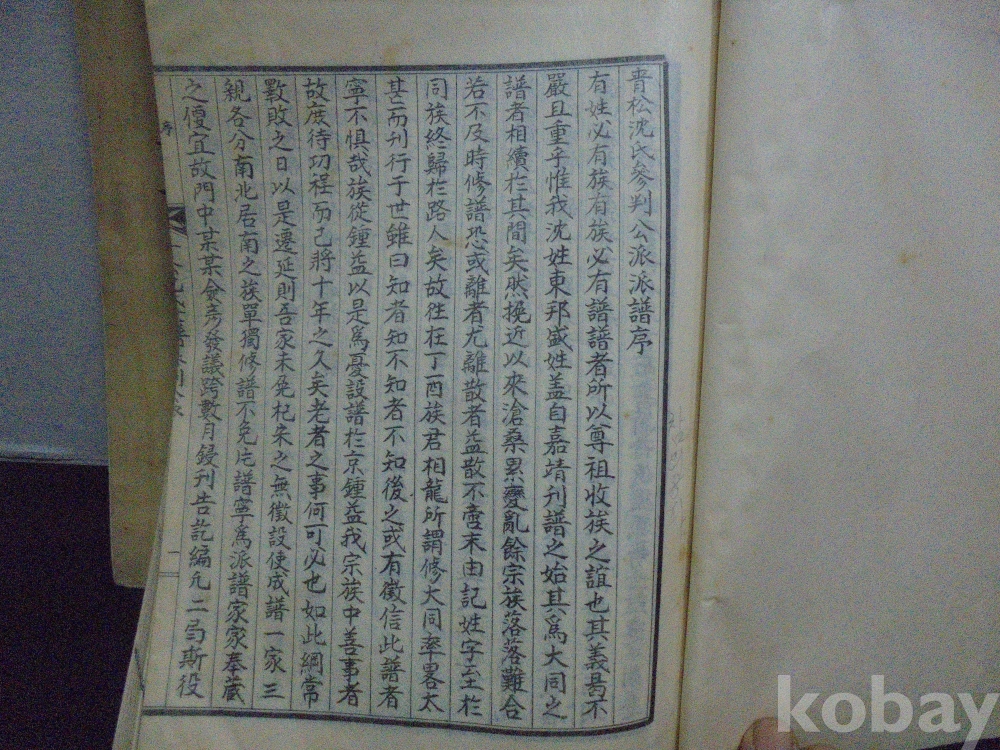 青松沈氏參判公派派譜序
有姓必有族有族必有譜譜者所以尊祖收族之誼也其義曷不
嚴且重乎惟我沈姓東邦盛姓盖自嘉靖刊譜之始其爲大同之
譜者相續於其間矣然挽近以來滄桑累變亂餘宗族落落難合
若不及時修譜恐或離者尤離散者益散不啻末由記姓字至於
同族終歸於路人矣故往在丁酉族君相龍所謂修大同率畧太
甚而刊行于世雖曰知者知不知者不知後之或有徵信此譜者
寧不懼哉族從鍾益以是爲憂設譜於京鍾益我宗族中善事者
故度待功程而已將十年之久矣老者之事何可必也如此綢常
斁敗之日以是遷延則吾家未免杞宋之無徵設使成譜一家三
親各分南北居南之族單獨修譜不免片譜寧爲派譜家家奉藏
之便宜故門中某某僉彦發議跨數月鋟刊告訖編九二局斯役
序
一
kobay